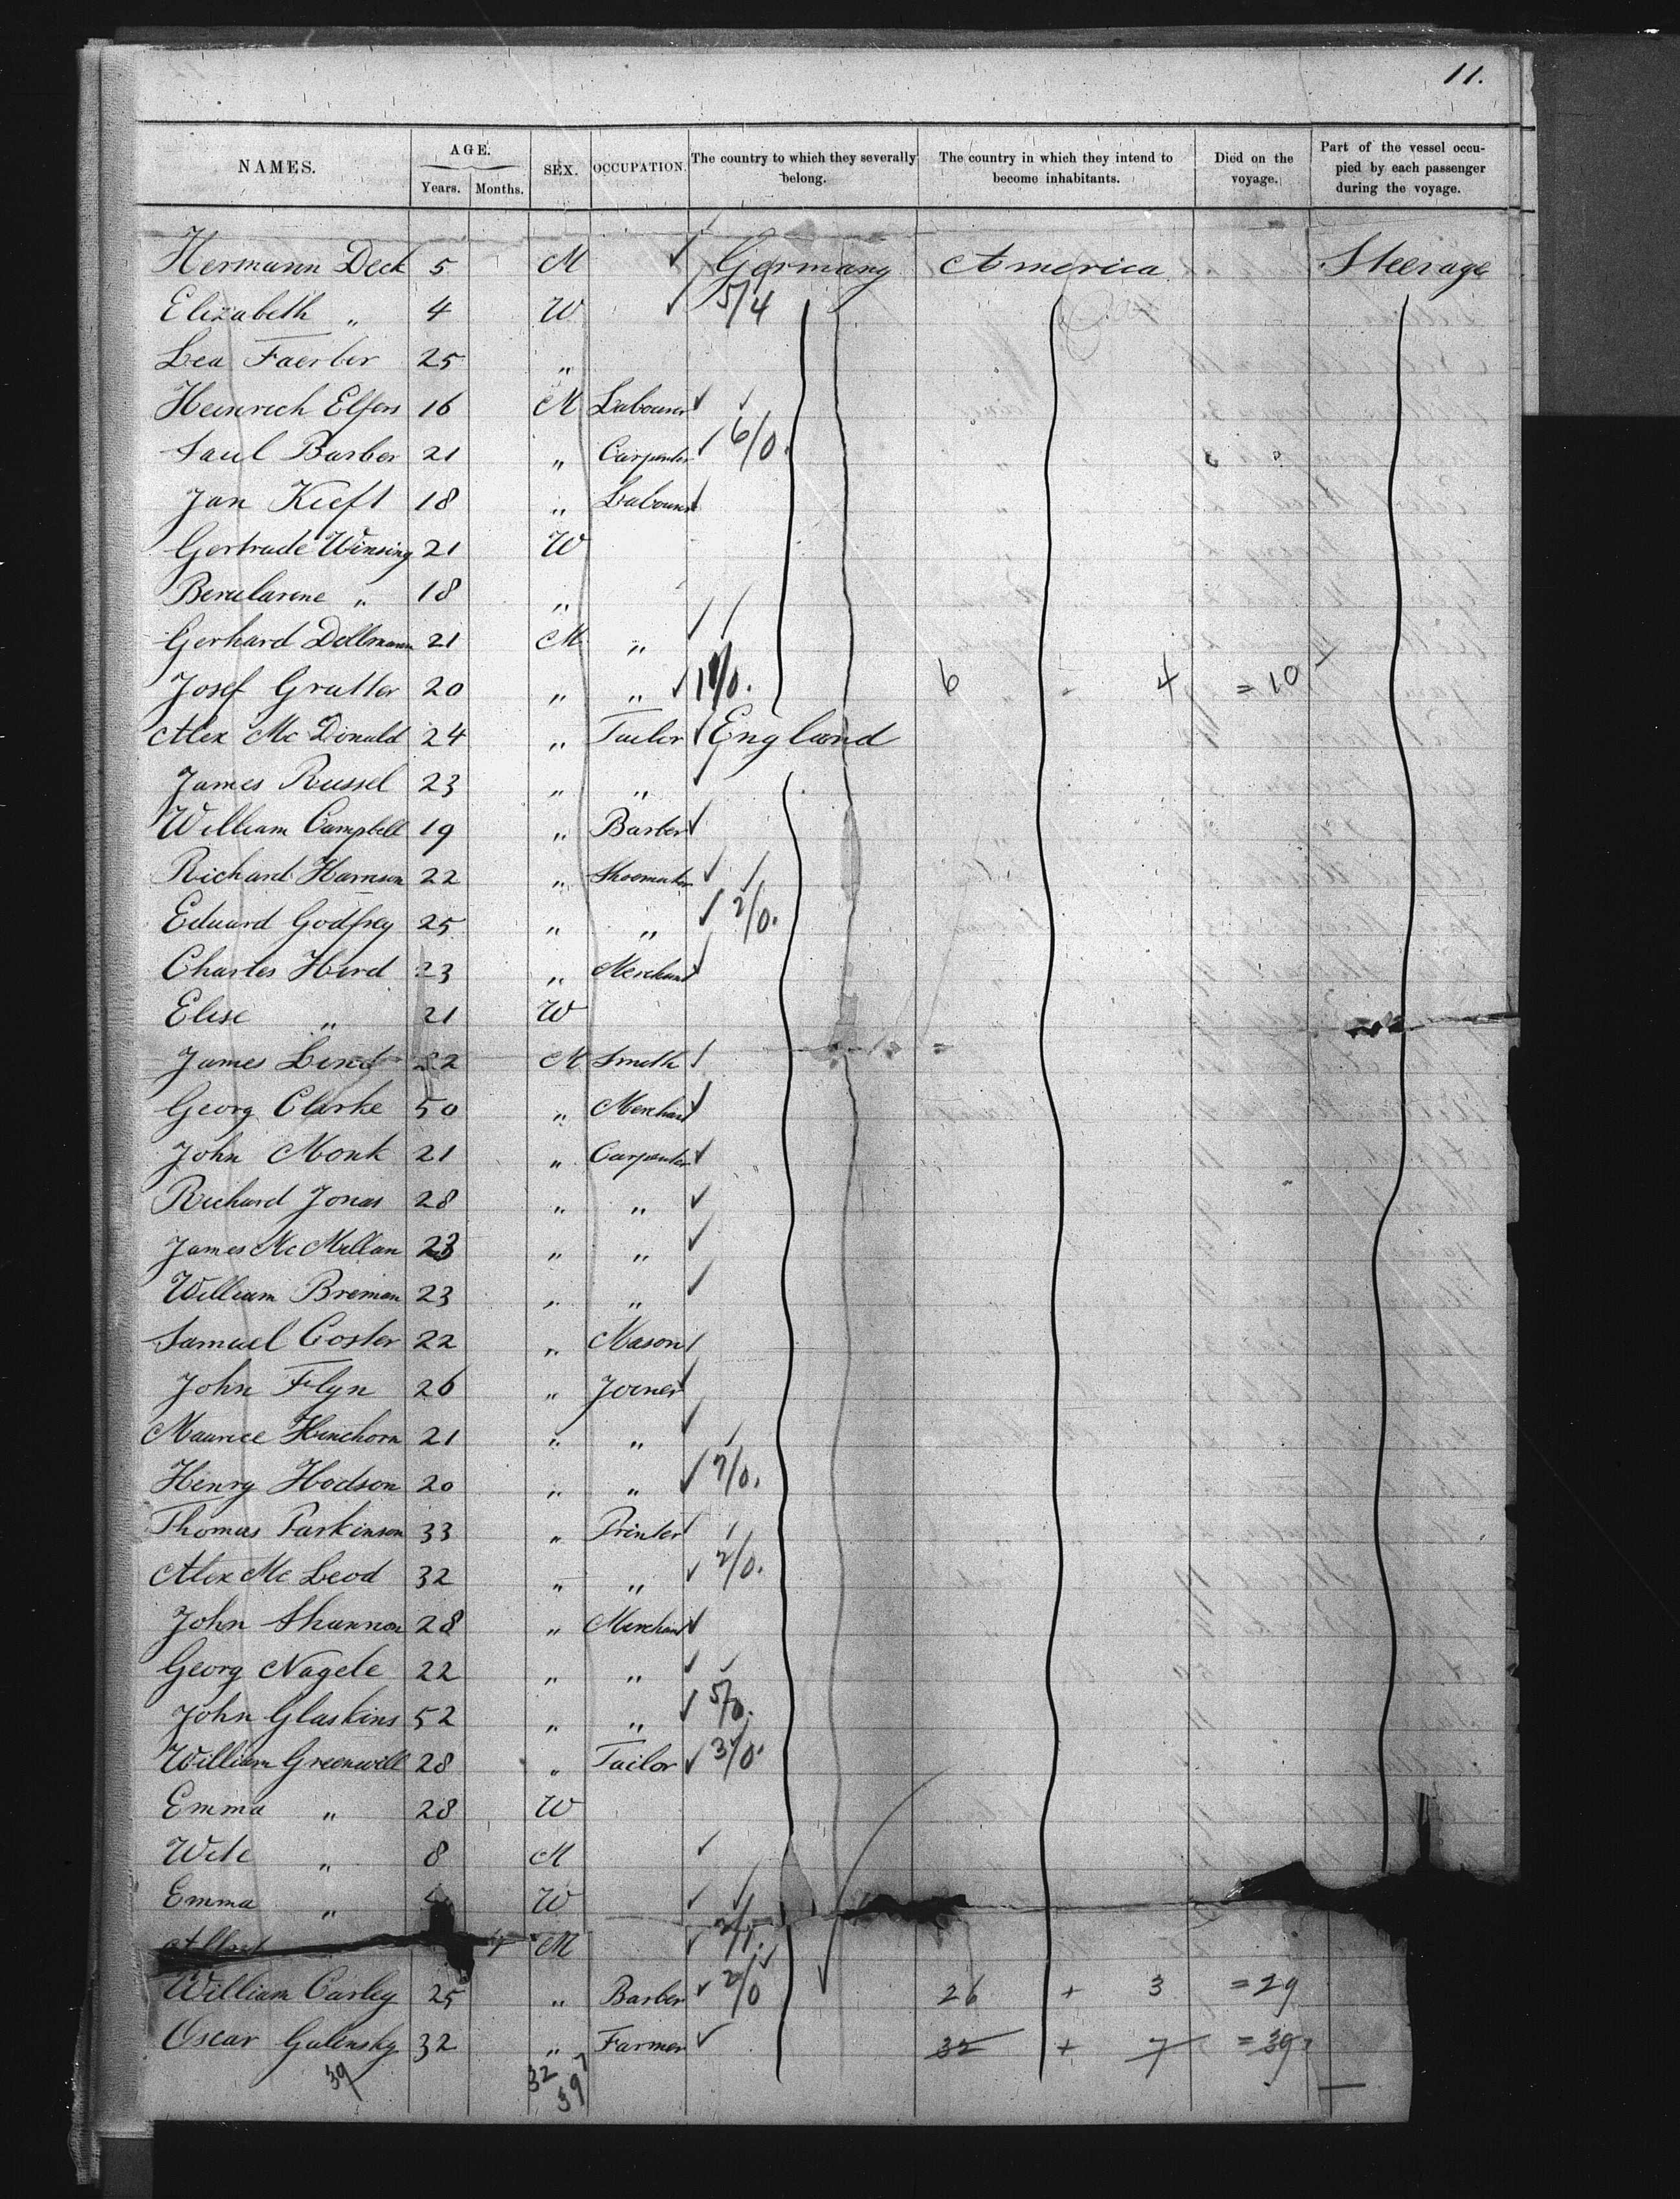 11.
NAMES. AGE. Years. Months. SEX. OCCUPATION. The country to which they severally belong. The country in which they intend to become inhabitants. Died on the voyage. Part of the vessel occupied by each passenger during the voyage.
Hermann Deck 5 M Germany America Steerage
Elizabeth " 4 W 5/4
Lea Faerber 25 "
Heinrich Elfers 16 M Labourer
Saul Barber 21 " Carpenter 6/0.
Jan Kieft 18 " Labourer
Gertrude Winsing 21 W
" 18 "
Gerhard Dellmann 21 M "
Josef Gratler 20 " " 6 4 = 10
Alex Mc Donald 24 " Tailor England
James Russel 23 " "
William Campbell 19 " Barber
Richard Harrison 22 " Shoemaker
Eduard Godfrey 25 " " 2/0.
Charles Hird 23 " Merchant
Elise " 21 W
James Lind 22 M Smith
Georg Clarke 50 " Merchant
John Monk 21 " Carpenter
Richard Jonas 28 " "
James Mc Millan 23 " "
William Breman 23 " "
Samuel Coster 22 " Mason
John Flyn 26 " Joiner
Maurice Hinchorn 21 " "
Henry Hodson 20 " " 7/0.
Thomas Parkinson 33 " Printer
Alex Mc Leod 32 " " 2/0.
John Shannon 28 " Merchant
Georg Nagele 22 " "
John Glaskins 52 " " 5/0.
William Greenwill 28 " Tailor 3/0.
Emma " 28 W
" 8 M
Emma " W
M 2/1.
William Carley 25 " Barber 2/0 26 + 3 = 29
Oscar Galensky 32 " Farmer 32 + 7 = 39
39 32 7
39